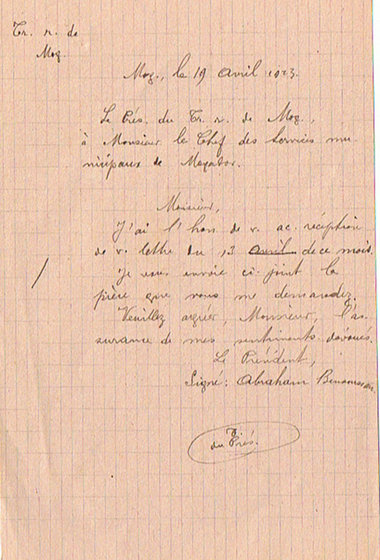 Tr. r. de
Mog.
Mog., le 19 Avril 1923.
Le Prés. du Tr. r. de Mog.,
à Monsieur le Chef des Services mu-
nicipaux de Mogador.
Monsieur,
J'ai l'hon. de v. ac. réception
de v. lettre du 13 avril de ce mois.
Je vous envoie ci-joint la
pièce que vous me demandez.
Veuillez agréer, Monsieur, l'as-
surance de mes sentiments dévoués.
Le Président,
Signé: Abraham
du Prés.